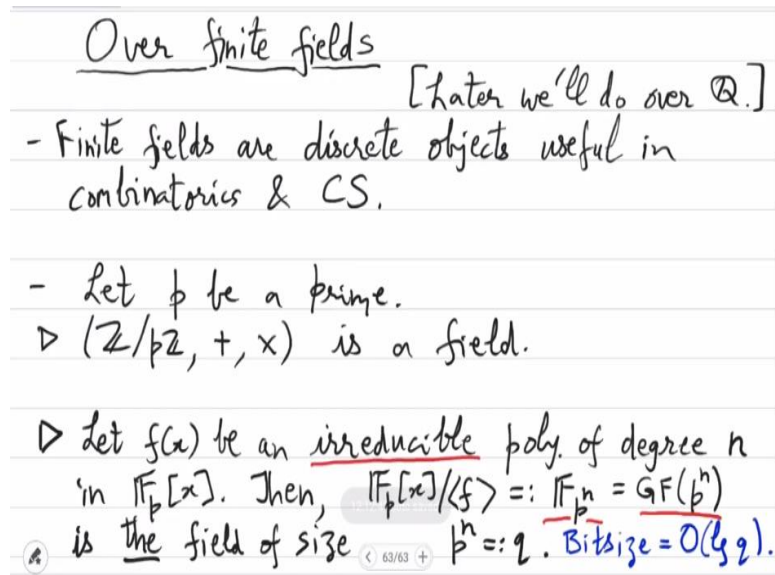 Over finite fields
[Later we'll do over ℚ.]
- Finite fields are discrete objects useful in
combinatorics & CS.
- Let p be a prime.
▷ (ℤ/pℤ, +, ×) is a field.
▷ Let f(x) be an irreducible poly. of degree n
in 𝔽_p[x]. Then, 𝔽_p[x]/<f> =: 𝔽_{p^n} = GF(p^n)
is the field of size p^n =: q. Bitsize = O(lg q).
< 63/63 +